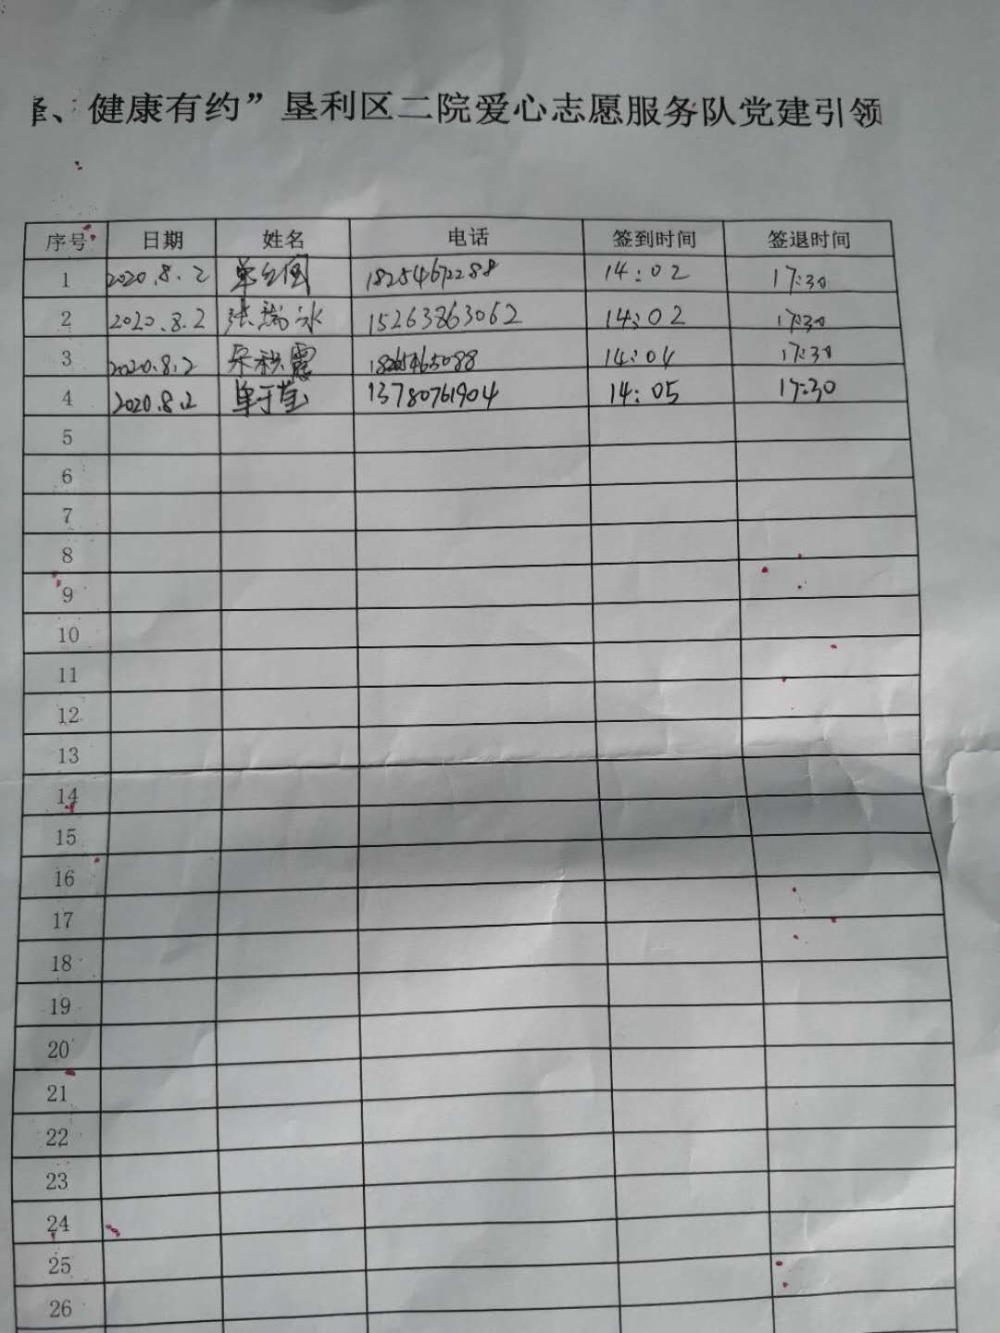 、健康有约”垦利区二院爱心志愿服务队党建引领
序号 日期 姓名 电话 签到时间 签退时间
1 2020.8.2 18254672288 14:02 17:30
2 2020.8.2 张瑞冰 15263863062 14:02 17:30
3 2020.8.2 14:04 17:30
4 2020.8.2 单于莹 13780761904 14:05 17:30
5
6
7
8
9
10
11
12
13
14
15
16
17
18
19
20
21
22
23
24
25
26